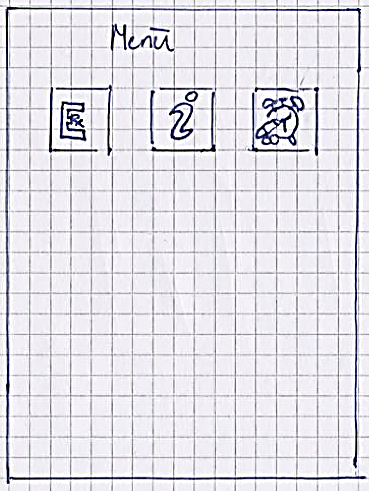 Menü
E i